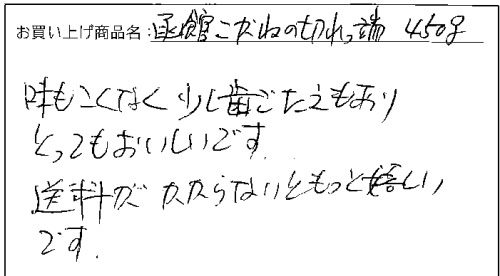 お買い上げ商品名:函館こがねの切れっ端 450g
味もこくなく少し歯ごたえもあり
とってもおいしいです.
送料がかからないともっと嬉しい
です.